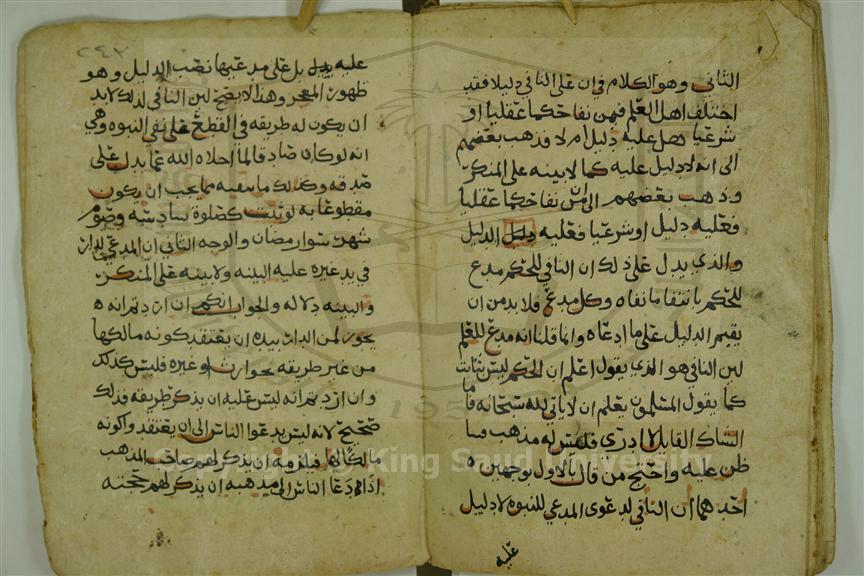 الثاني وهو الكلام في ان على النافي دليلا فقد
اختلف اهل العلم فيمن نفا حكما عقليا او
شرعيا هل عليه دليل ام لا فذهب بعضهم
الى انه لا دليل عليه كما لا بينه على المنكر
وذهب بعضهم الى ان من نفا حكما عقليا
فعليه دليل او شرعيا فعليه الدليل
والذي يدل على ذلك ان النافي للحكم مدع
للحكم بانتفا ما نفاه وكل مدع فلا بد من ان
يقيم الدليل على ما ادعاه وانما قلنا انه مدع للعلم
لين النافي هو الذي يقول اعلم ان الحكم ليس ثابت
كما يقول المسلمون يعلم ان لا ثاني لله سبحانه فاما
الشاك القايل لا ادري فليس له مذهب فيما
ظن عليه واحتج من قال بالاول بوجهين ه
احدهما ان النافي لدعوى المدعي للنبوه لا دليل
عليه
٢٤٢
عليه بل على مدعيها نصب الدليل وهو
ظهور المعجز وهذا لا يصح لين النافي لذلك لا بد
ان يكون له طريقه في القطع على نفي النبوه وهي
انه لو كان صادقا لما اخلاه الله عما يدل على
صدقه وكذلك ما ننفيه مما يجب ان يكون
مقطوعا به لو ثبت كصلوة سادسه وصوم
شهر سوا رمضان والوجه الثاني ان المدعي لدار
في يد غيره عليه البينه ولا بينه على المنكر
والبينه دلاله والجواب انكم ان اردتم انه ه
يجوز لمن الدار بيده ان يعتقد كونه مالكها
من غير طريقه نحو ارث او غيره فليس كذلك
وان اردتم انه ليس عليه ان يذكر طريقه فذلك
صحيح لانه ليس يدعوا الناس الى ان يعتقدوا كونه
مالكا لها فيلزمه ان يذكر لهم صاحب المذهب
اذا دعا الناس الى مذهبه ان يذكر لهم حجته
Copyright © King Saud University
195